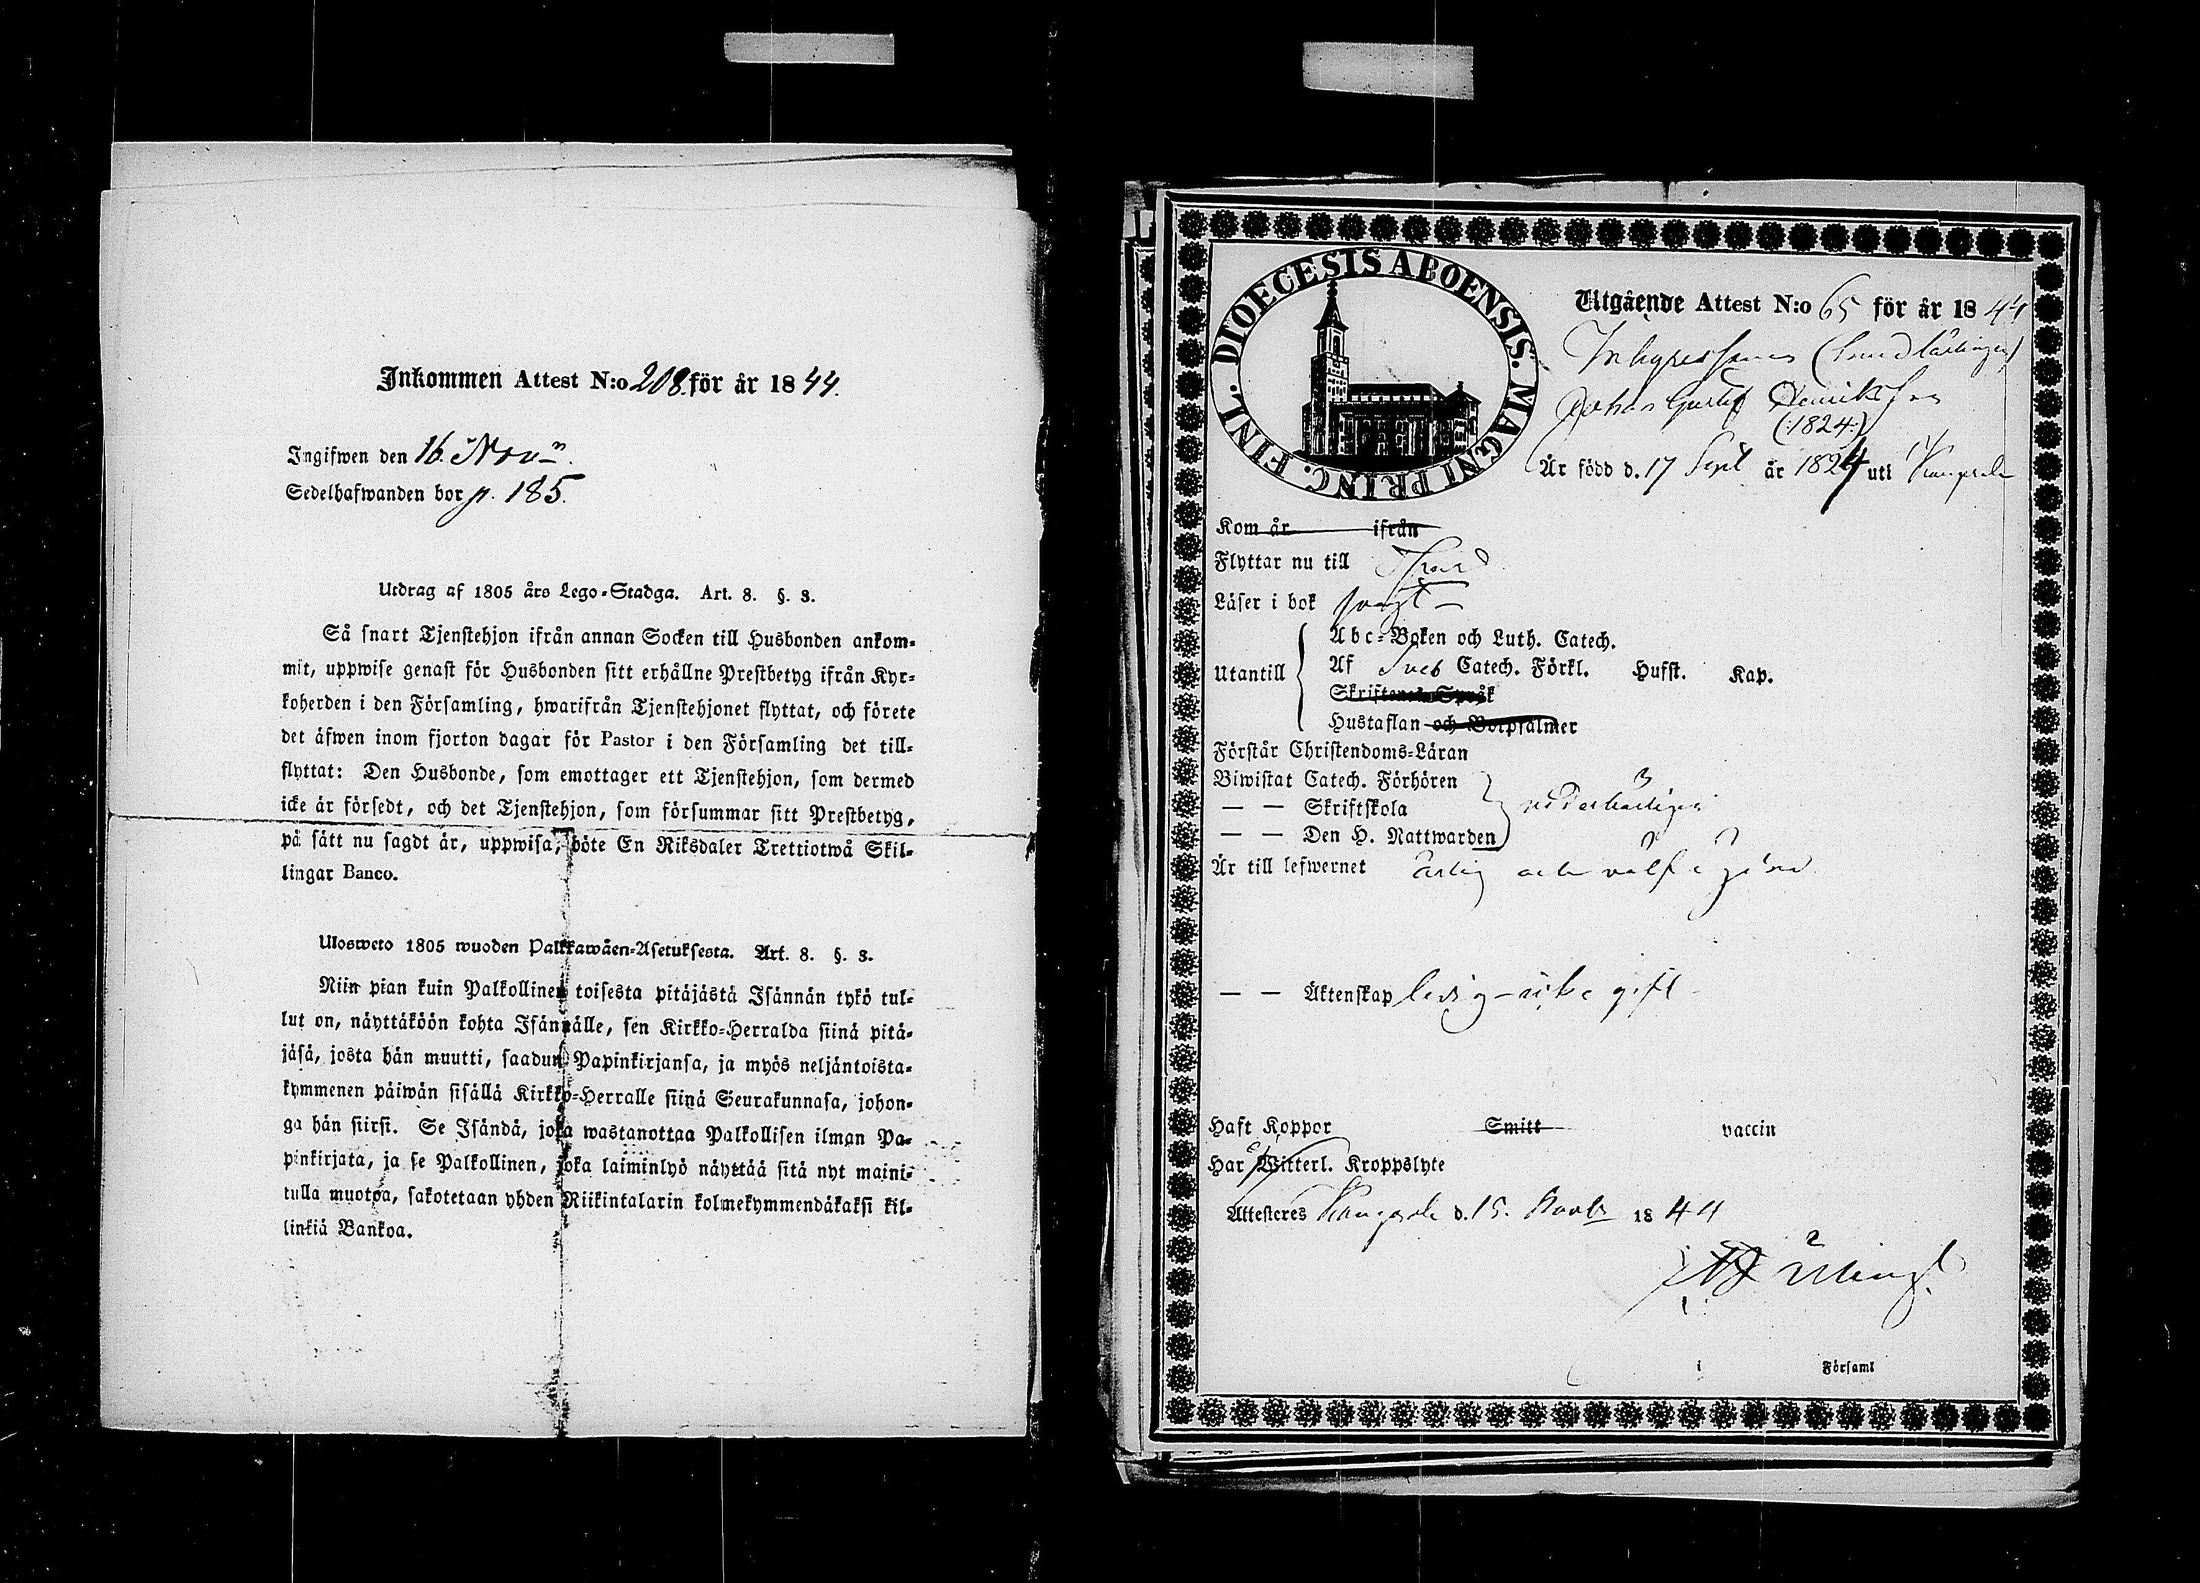 Inkommen Attest N:o 208. för år 1844.
Ingifwen den 16. Nov:
Sedelhafwanden bor p. 185.
Utdrag af 1805 års Lego-Stadga. Art. 8. §. 3.
Så snart Tjenstehjon ifrån annan Socken till Husbonden ankom-
mit, uppwise genast för Husbonden sitt erhållne Prestbetyg ifrån Kyr-
koherden i den Församling, hwarifrån Tjenstehjonet flyttat, och förete
det äfwen inom fjorton dagar för Pastor i den Församling det till-
flyttat: Den Husbonde, som emottager ett Tjenstehjon, som dermed
icke är försedt, och det Tjenstehjon, som försummar sitt Prestbetyg,
på sätt nu sagdt är, uppwisa, böte En Riksdaler Trettiotwå Skil-
lingar Banco.
Ulosweto 1805 wuoden Palkkawäen-Asetuksesta. Art. 8. §. 3.
Niin pian kuin Palkollinen toisesta pitäjästä Isännän tykö tul-
lut on, näyttäköön kohta Isännälle, sen Kirkko-Herralda siinä pitä-
jäsä, josta hän muutti, saadun Papinkirjansa, ja myös neljäntoista-
kymmenen päiwän sisällä Kirkko-Herralle siinä Seurakunnasa, johon-
ga hän siirsi. Se Isändä, joka wastanottaa Palkollisen ilman Pa-
pinkirjata, ja se Palkollinen, joka laiminlyö näyttää sitä nyt maini-
tulla muotoa, sakotetaan yhden Riikintalarin kolmekymmendäkaksi kil-
linkiä Bankoa.
DIOECESIS ABOENSIS. MAGNI PRINC. FINL.
Utgående Attest N:o 65 för år 1844
Johan Gustaf Henriksson
(:1824:)
Är född d. 17 Sept. år 1824 uti Kangasala
Kom år ifrån
Flyttar nu till
Läser i bok svagt
Utantill
Abc-Boken och Luth. Catech.
Af Sveb Catech. Förkl. Hufst. Kap.
Skriftenes Språk
Hustaflan och Botpsalmer
Förstår Christendoms-Läran
Biwistat Catech. Förhören
— — Skriftskola
— — Den H. Nattwarden
Är till lefwernet ärlig och
— — Äktenskap ledig – icke gift
Haft Koppor Smitt vaccin
Har Witterl. Kroppslyte
Attesteres Kangasala d. 15. Novbr 1844
i Församl